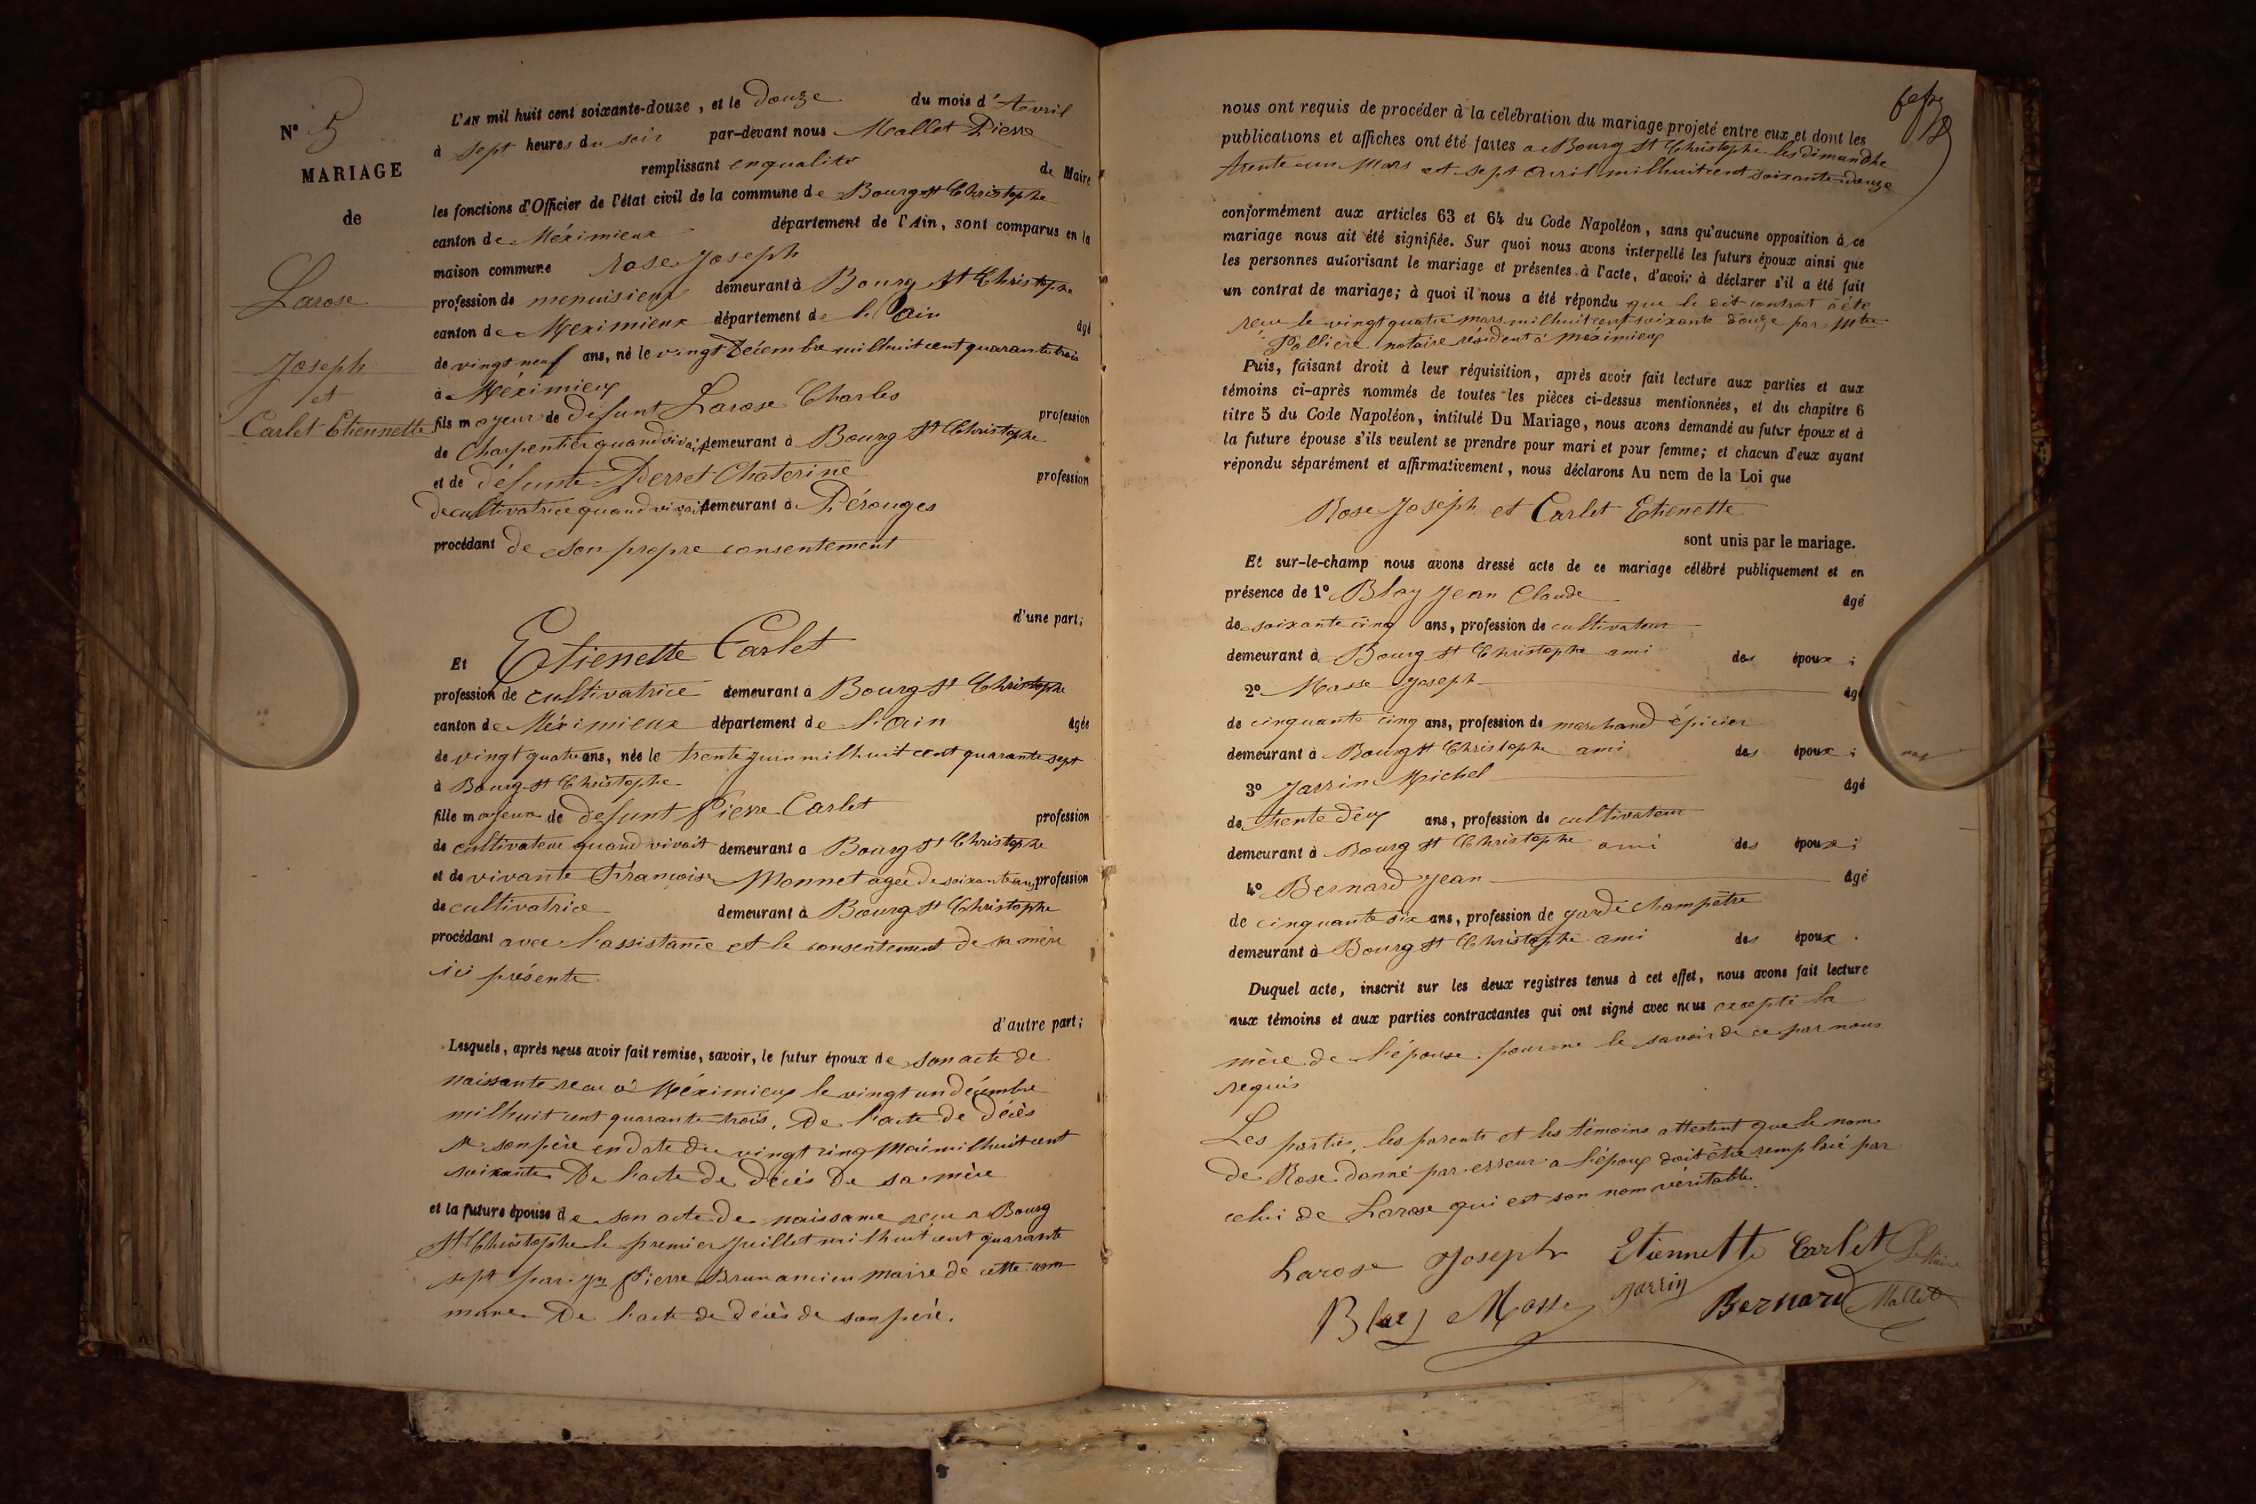 N° 5
MARIAGE
de
Larose
Joseph
et
Carlet Etiennette
L'AN mil huit cent soixante-douze, et le douze du mois d'Avril
à sept heures du soir par-devant nous Mallet Pierre
remplissant en qualité de Maire
les fonctions d'Officier de l'état civil de la commune de Bourg St Christophe
canton de Méximieux département de l'Ain, sont comparus en la
maison commune Rose Joseph
profession de menuisieur demeurant à Bourg St Christophe
canton de Meximieux département de l'Ain âgé
de vingt neuf ans, né le vingt Décembre mil huit cent quarante trois
à Méximieux
fils majeur de défunt Larose Charles profession
de Charpentier quand vivait demeurant à Bourg St Christophe
et de défunte Perret Chaterine profession
de cultivatrice quand vivait demeurant à Pérouges
procédant de son propre consentement
d'une part;
Et Etienette Carlet
profession de cultivatrice demeurant à Bourg St Christophe
canton de Méximieux département de l'Ain âgée
de vingt quatre ans, née le trente juin mil huit cent quarante sept
à Bourg St Christophe
fille majeure de defunt Pierre Carlet profession
de cultivateur quand vivait demeurant à Bourg St Christophe
et de vivante Françoise Monnet agée de soixante ans profession
de cultivatrice demeurant à Bourg St Christophe
procédant avec l'assistance et le consentement de sa mère
ici présente
d'autre part;
Lesquels, après nous avoir fait remise, savoir, le futur époux de son acte de
naissante recu à Méximieux le vingt un décembre
mil huit cent quarante trois. De l'acte de décès
de son père en date du vingt cinq Mai mil huit cent
soixante De l'acte de décès De sa mère
et la future épouse de son acte de naissance recu a Bourg
St Christophe le premier juillet mil huit cent quarante
sept par Pierre Brun ancien maire de cette com
mune De l'acte de décès de son père.
nous ont requis de procéder à la célébration du mariage projeté entre eux et dont les
publications et affiches ont été faites a Bourg St Christophe les dimanche
trente un Mars et sept avril mil huit cent soixante douze
conformément aux articles 63 et 64 du Code Napoléon, sans qu'aucune opposition à ce
mariage nous ait été signifiée. Sur quoi nous avons interpellé les futurs époux ainsi que
les personnes autorisant le mariage et présentes à l'acte, d'avoir à déclarer s'il a été fait
un contrat de mariage; à quoi il nous a été répondu que le dit contrat a été
recu le vingt quatre mars mil huit cent soixante douze par Mtre
Pallière notaire résident à Méximieux
Puis, faisant droit à leur réquisition, après avoir fait lecture aux parties et aux
témoins ci-après nommés de toutes les pièces ci-dessus mentionnées, et du chapitre 6
titre 5 du Code Napoléon, intitulé Du Mariage, nous avons demandé au futur époux et à
la future épouse s'ils veulent se prendre pour mari et pour femme; et chacun d'eux ayant
répondu séparément et affirmativement, nous déclarons Au nom de la Loi que
Rose Joseph et Carlet Etienette
sont unis par le mariage.
Et sur-le-champ nous avons dressé acte de ce mariage célébré publiquement et en
présence de 1° Blay Jean Claude âgé
de soixante cinq ans, profession de cultivateur
demeurant à Bourg St Christophe ami des époux;
2° Masse Joseph âgé
de cinquante cinq ans, profession de marchand épicier
demeurant à Bourg St Christophe ami des époux;
3° Jarrin Michel âgé
de Trente deux ans, profession de cultivateur
demeurant à Bourg St Christophe ami des époux;
4° Bernard Jean âgé
de cinquante six ans, profession de garde champêtre
demeurant à Bourg St Christophe ami des époux.
Duquel acte, inscrit sur les deux registres tenus à cet effet, nous avons fait lecture
aux témoins et aux parties contractantes qui ont signé avec nous excepté la
mère de l'épouse pour ne le savoir de ce par nous
requis
Les parties, les parents et les témoins attestent que le nom
de Rose donné par erreur a l'époux doit être remplacé par
celui de Larose qui est son nom véritable.
Larose Joseph Etiennette Carlet Le Maire
Blay Masse Jarrin Bernard Mallet